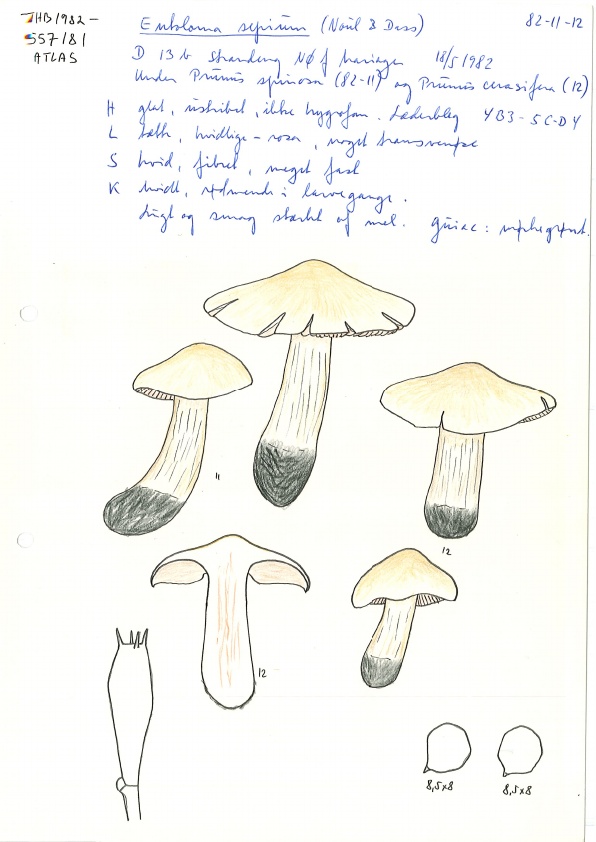 THB/1982-
557/81
ATLAS
Entoloma sepium (Noul & Dass)
82-11-12
D 13 b Strandeng NØ f Mariager 18/5 1982
Under Prunus spinosa (82-11) og Prunus cerasifera (12)
H glat, ustribet, ikke hygrofan. Læderbleg 4B3-5C-D4
L tæt, hvidlige - rosa, noget
S hvid, fibret, meget fast
K hvidt, rødmende i larvegange.
Lugt og smag stærkt af mel. Guiac:
11
12
12
8,5x8
8,5x8